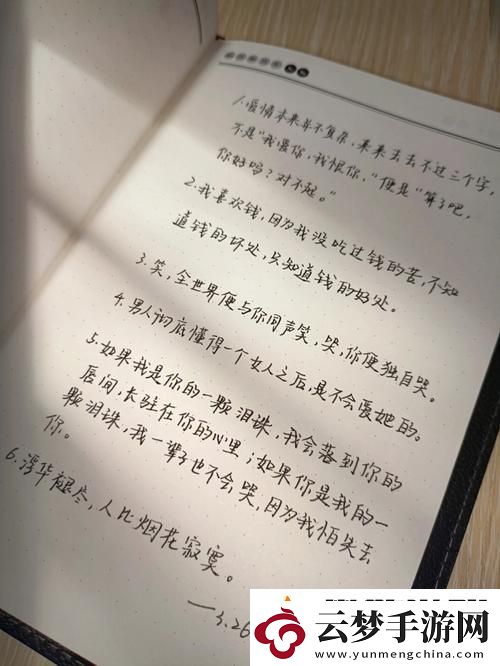 1.爱情本来并不复杂，来来去去不过三个字，
不是“我爱你，我恨你，”便是“算了吧，
你好吗？对不起。”
2.我喜欢钱，因为我没吃过钱的苦，不知
道钱的坏处，只知道钱的好处。
3.笑，全世界便与你同声笑，哭，你便独自哭。
4.男人彻底懂得一个女人之后，是不会爱她的。
5.如果我是你的一颗泪珠，我会落到你的
唇间，长驻在你的心里；如果你是我的一
颗泪珠，我一辈子也不会哭，因为我怕失去
你。
6.浮华褪尽，人比烟花寂寞。
——3.26
云梦手游网
www.yunmengchina.com